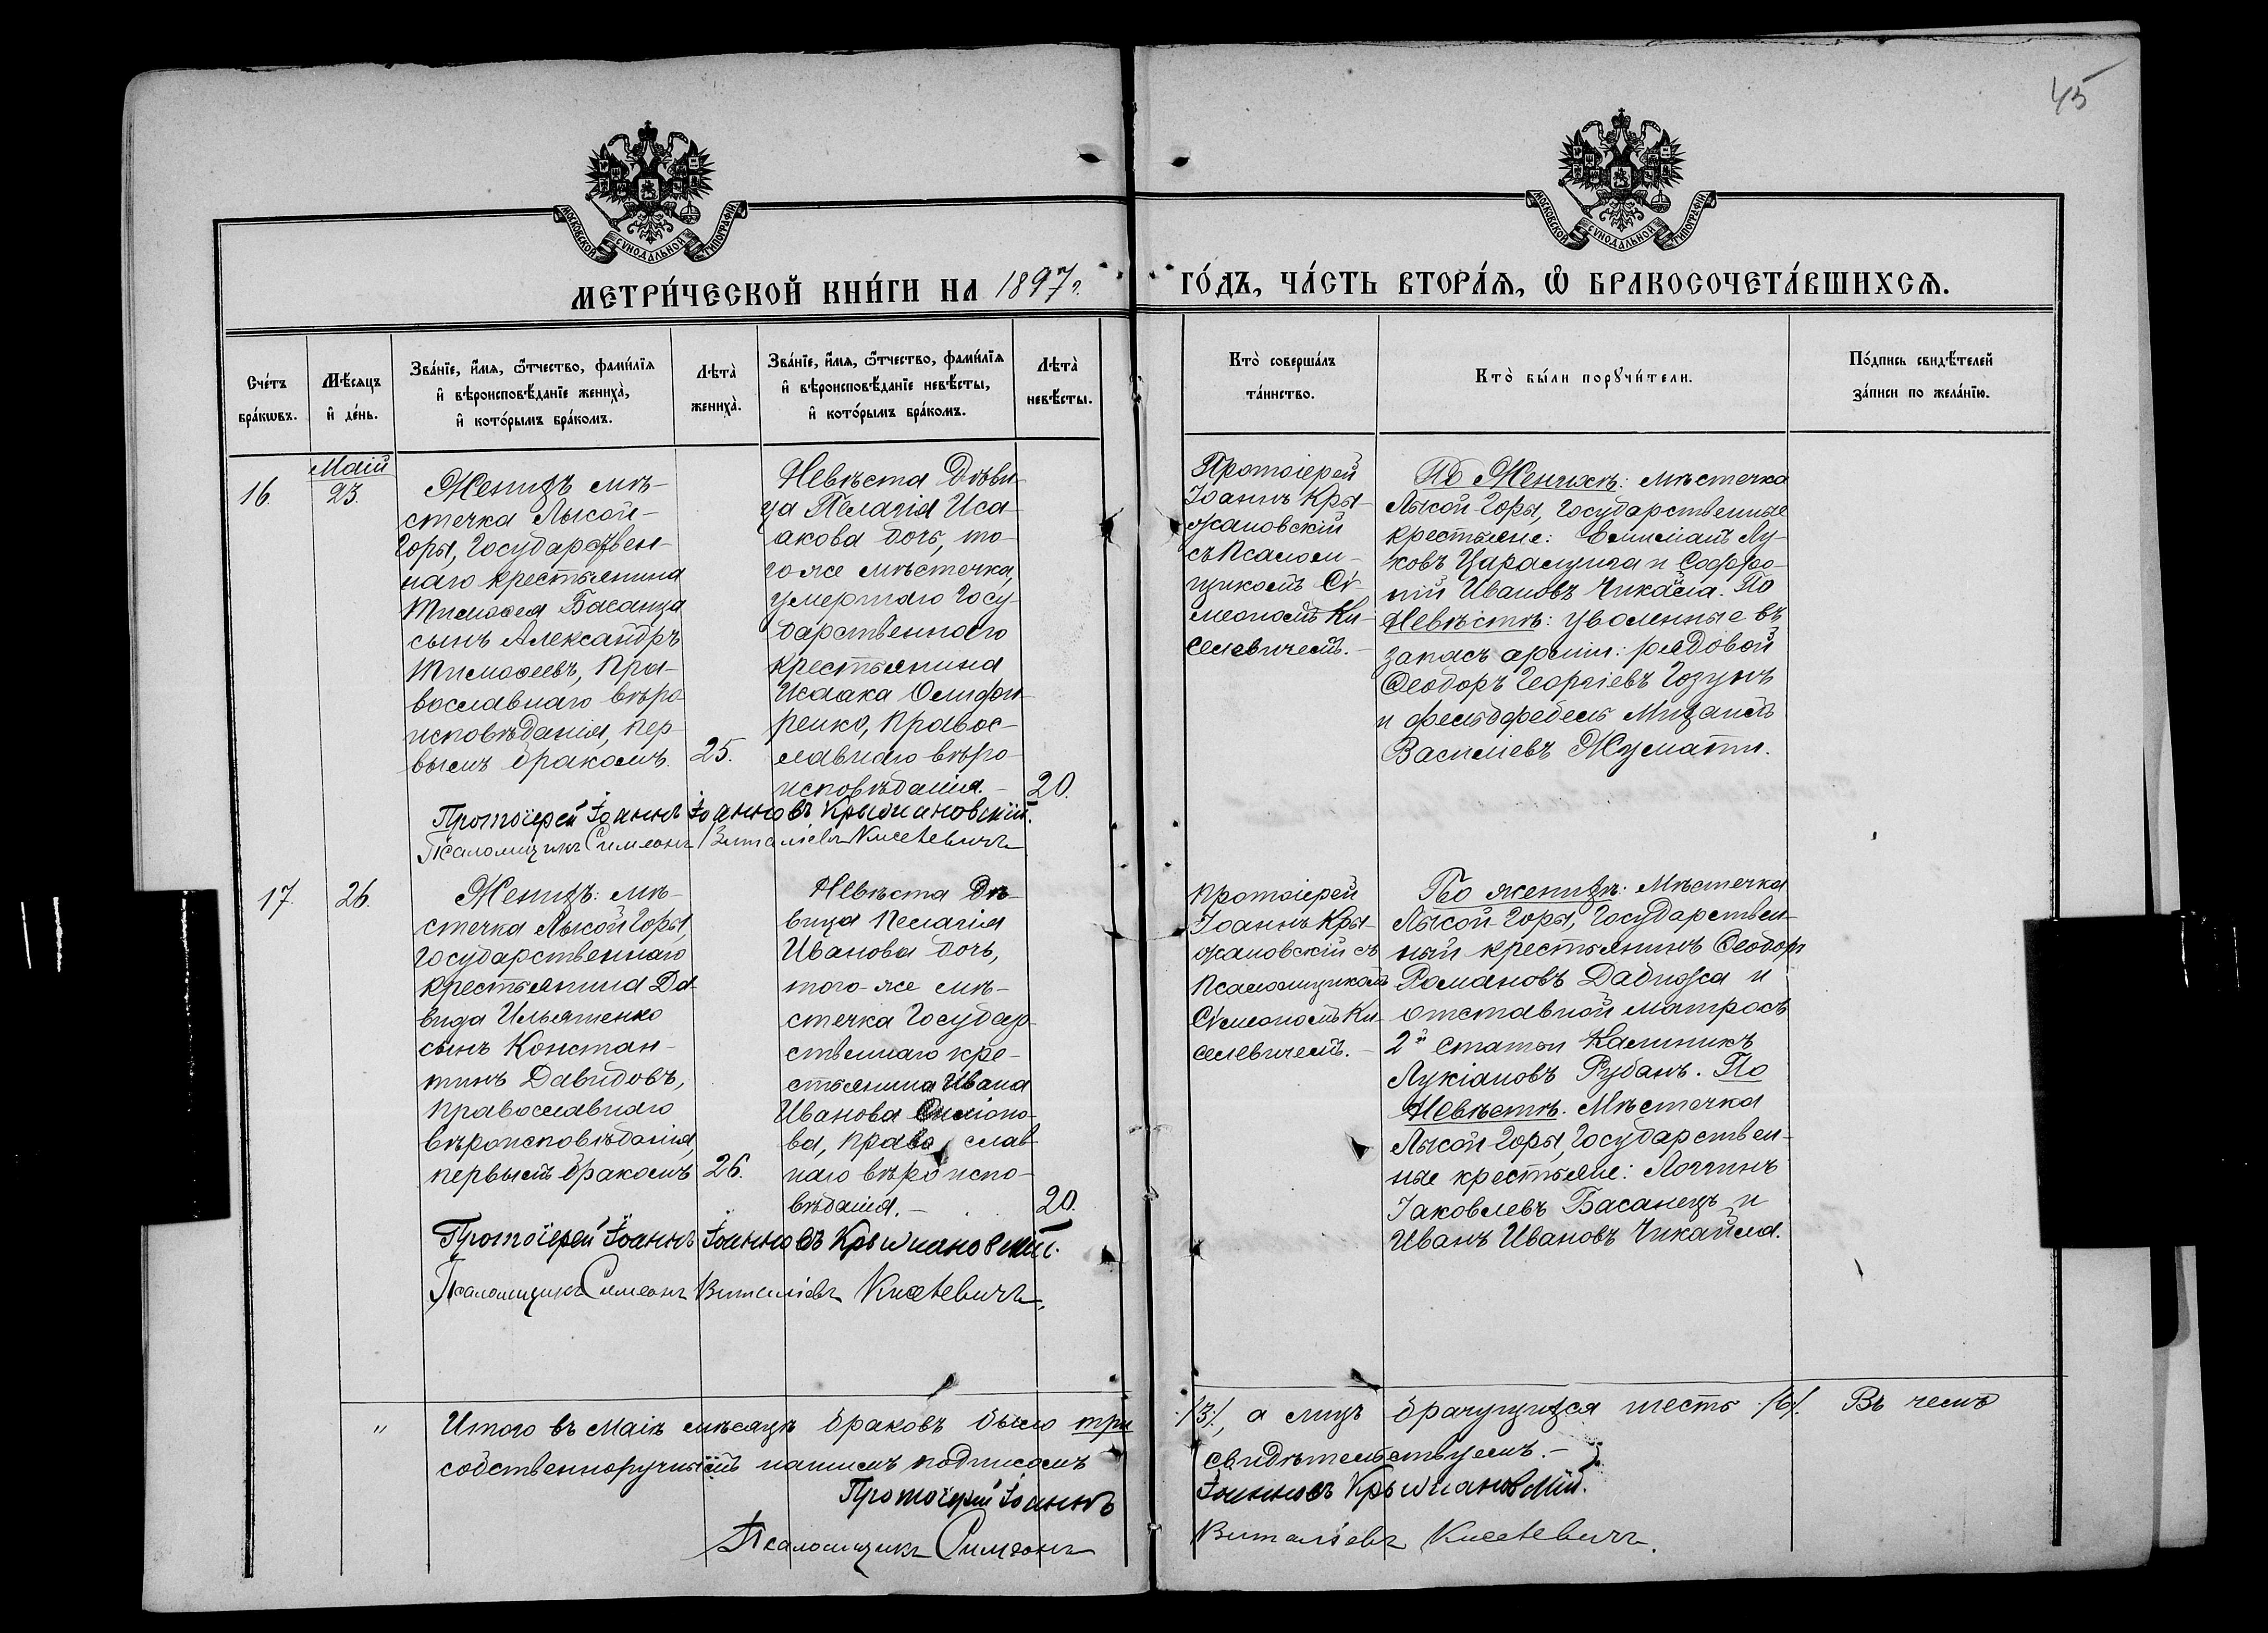 45
МОСКОВСКОЙ СѴНОДАЛЬНОЙ ТИПОГРАФІИ
МОСКОВСКОЙ СѴНОДАЛЬНОЙ ТИПОГРАФІИ
МЕТРИ́ЧЕСКОЙ КНИ́ГИ НА 1897 г.
ГО́ДЪ, ЧА́СТЬ ВТОРА́Ѧ, Ѡ҆ БРАКОСОЧЕТА́ВШИХСѦ.
Сче́тъ
бра́кѡвъ.
Мѣ́сѧцъ
и҆ де́нь.
Зва́нїе, и҆́мѧ, ѻ҆́тчество, фами́лїѧ
и҆ вѣроисповѣ́данїе жениха̀,
и҆ кото́рымъ бра́комъ.
Лѣта̀
жениха̀.
Зва́нїе, и҆́мѧ, ѻ҆́тчество, фами́лїѧ
и҆ вѣроисповѣ́данїе невѣ́сты,
и҆ кото́рымъ бра́комъ.
Лѣта̀
невѣ́сты.
Кто̀ соверша́лъ
та́инство.
Кто̀ бы́ли порꙋчи́тели.
По́дпись свидѣ́телей
за́писи по жела́нїю.
16.
Маій
23.
Женихъ мѣ-
стечка Лысой-
Горы, Государствен-
наго крестьянина
Тимоѳея Басанца
сынъ Александръ
Тимоѳеевъ, Пра-
вославнаго вѣро
исповѣданія, пер-
вымъ бракомъ.
25.
Невѣста Дѣви-
ца Пелагія Иса-
акова дочь, то-
го же мѣстечка,
умершаго Госу-
дарственнаго
крестьянина
Исаака Олифи-
ренко, Правос-
лавнаго вѣро-
исповѣданія.-
20.
Протоіерей
Іоаннъ Кры-
жановскій
съ Псалом-
щикомъ Сѵ-
меономъ Ки-
селевичемъ.-
По Женихѣ: Мѣстечка
Лысой-Горы, Государственные
крестьяне: Емиліанъ Лу-
ковъ Царалунга и Софро-
ній Ивановъ Чикайла. По
Невѣстѣ: уволенные въ
запасъ арміи: рядовой
Ѳеодоръ Георгіевъ Гозунъ
и фельдфебель Михаилъ
Василіевъ Жуматти.
Протоіерей Іоаннъ Іоанновъ Крыжановскій.
Псаломщикъ Симеонъ Виталіевъ Киселевичъ
17.
26.
Женихъ: мѣ-
стечка Лысой Горы,
Государственнаго
крестьянина Да-
вида Ильяшенко
сынъ Констан-
тинъ Давидовъ,
православнаго
вѣроисповѣданія,
первымъ бракомъ
26.
Невѣста Дѣ-
вица Пелагія
Иванова дочь,
того-же мѣ-
стечка Государ-
ственнаго кре-
стьянина Ивана
Иванова
ва, право слав-
наго вѣроиспо-
вѣданія.-
20.
Протоіерей
Іоаннъ Кры-
жановскій съ
Псаломщикомъ
Сѵмеономъ Ки-
селевичемъ.-
По женихѣ: Мѣстечка
Лысой-Горы, Государствен-
ный крестьянинъ Ѳеодоръ
Романовъ Дабижа и
отставной матросъ
2й статьи Калиникъ
Лукіановъ Рубанъ. По
Невѣстѣ. Мѣстечка
Лысой-Горы, Государствен-
ные крестьяне: Логгинъ
Іаковлевъ Басанецъ и
Иванъ Ивановъ Чикайла.
Протоіерей Іоаннъ Іоанновъ Крыжановскій.
Псаломщикъ Симеонъ Виталіевъ Киселевичъ.
" Итого въ Маіѣ мѣсяцѣ браковъ было три /3/, а лицъ брачущихся шесть /6/. Въ чемъ
собственноручнымъ нашимъ подписомъ свидѣтельствуемъ.-
Протоіерей Іоаннъ Іоанновъ Крыжановскій.
Псаломщикъ Симеонъ Виталіевъ Киселевичъ.